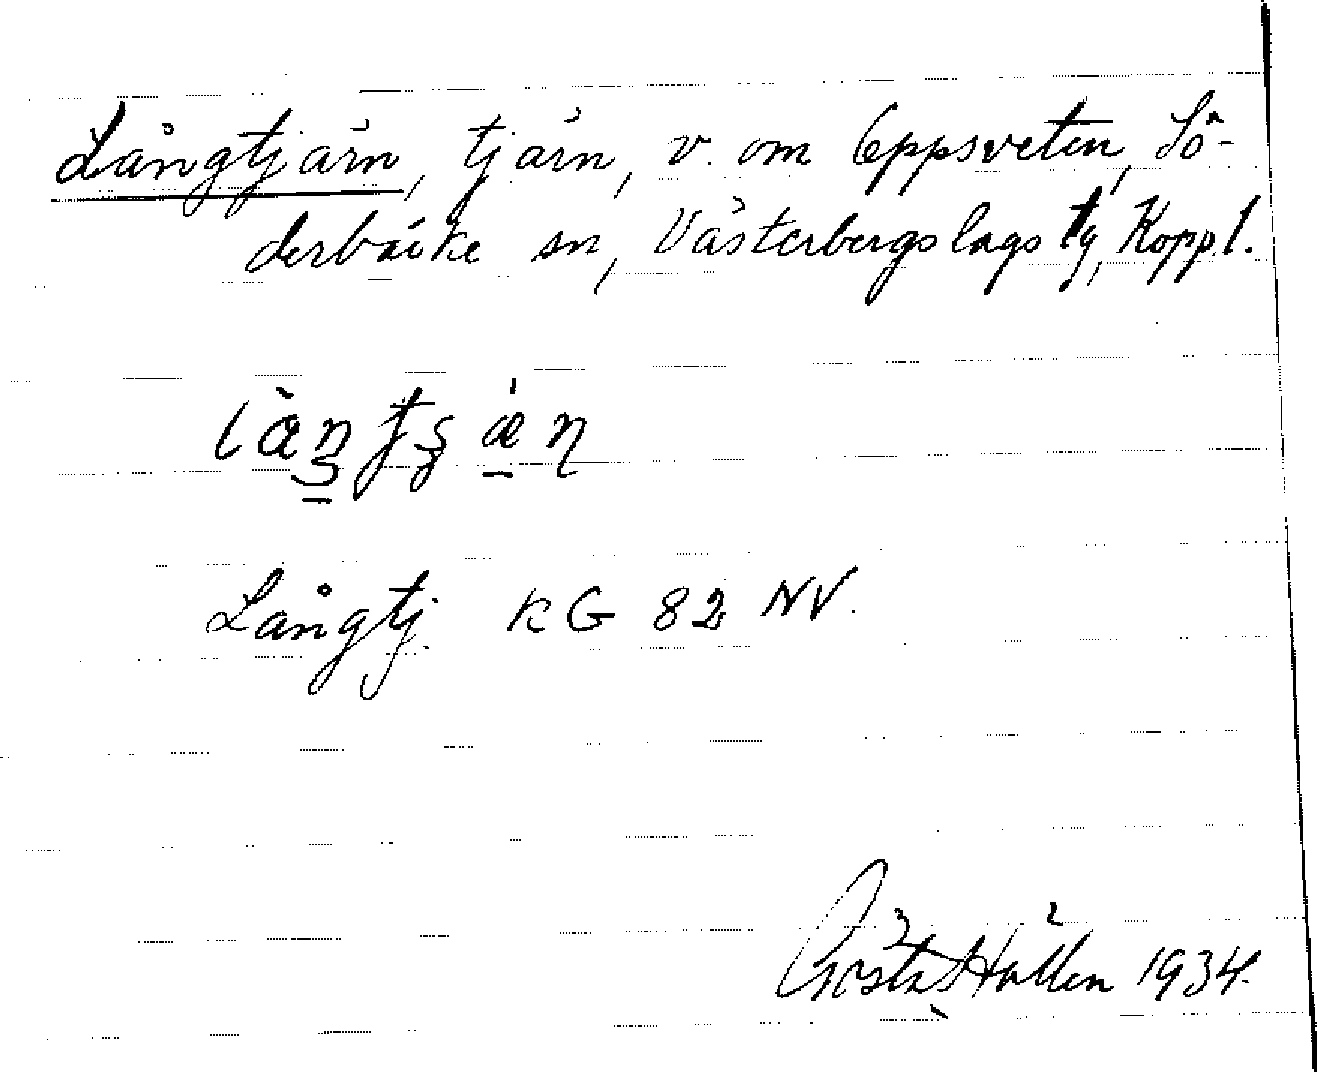 Långtjärn, tjärn, v. om Eppsveten, Sö-
derbärke sn, Västerbergslags tg, Koppl.
Långtj. KG 82 NV.
Gösta Hallén 1934.